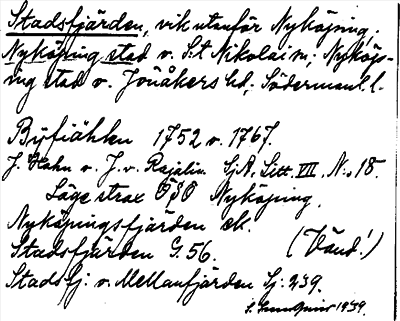 Stadsfjärden, vik utanför Nyköping,
Nyköping stad o. S:t Nikolai sn; Nyköp-
ing stad o. Jönåkers hd; Södermanl. l.
Byfiähln 1752 o. 1767.
J. Hahn o. J. v. Rajalin. SjA, Litt. VII, N:o 18.
Läge strax OSO Nyköping.
Nyköpingsfjärden ek.
Stadsfjärden G. 56. (Vänd!)
Stadsfj. o. Mellanfjärden Sj. 239.
1939.